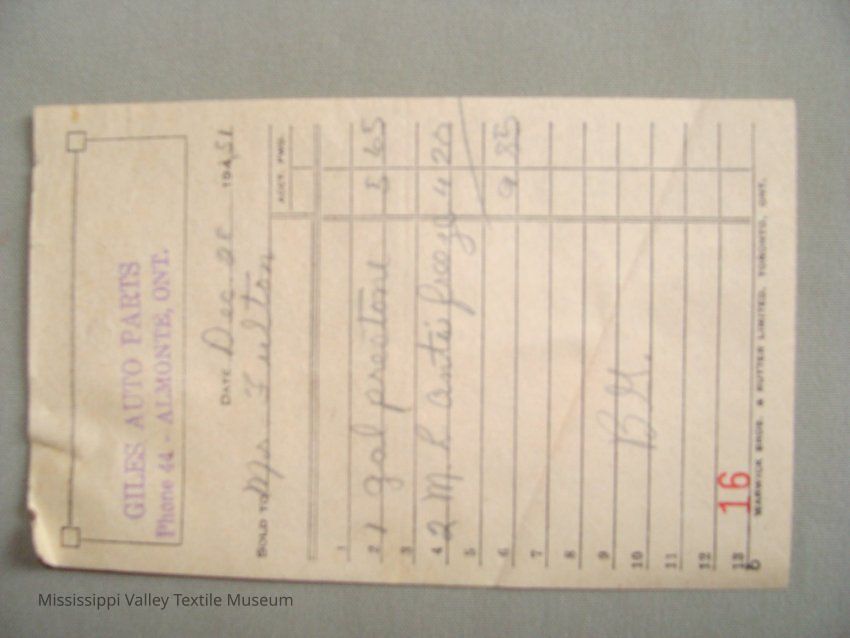 GILES AUTO PARTS
Phone 44 - ALMONTE, ONT.
DATE Dec 1951
SOLD TO Mr. Fulton
ACCT. FWD.
1
2 1 gal prestone 5 65
3
4 2 M. R. anti freeze 4 20
5
6 9 85
7
8
9
10 B.G.
11
12
13
16
WARWICK BROS. & RUTTER LIMITED, TORONTO, ONT.
Mississippi Valley Textile Museum